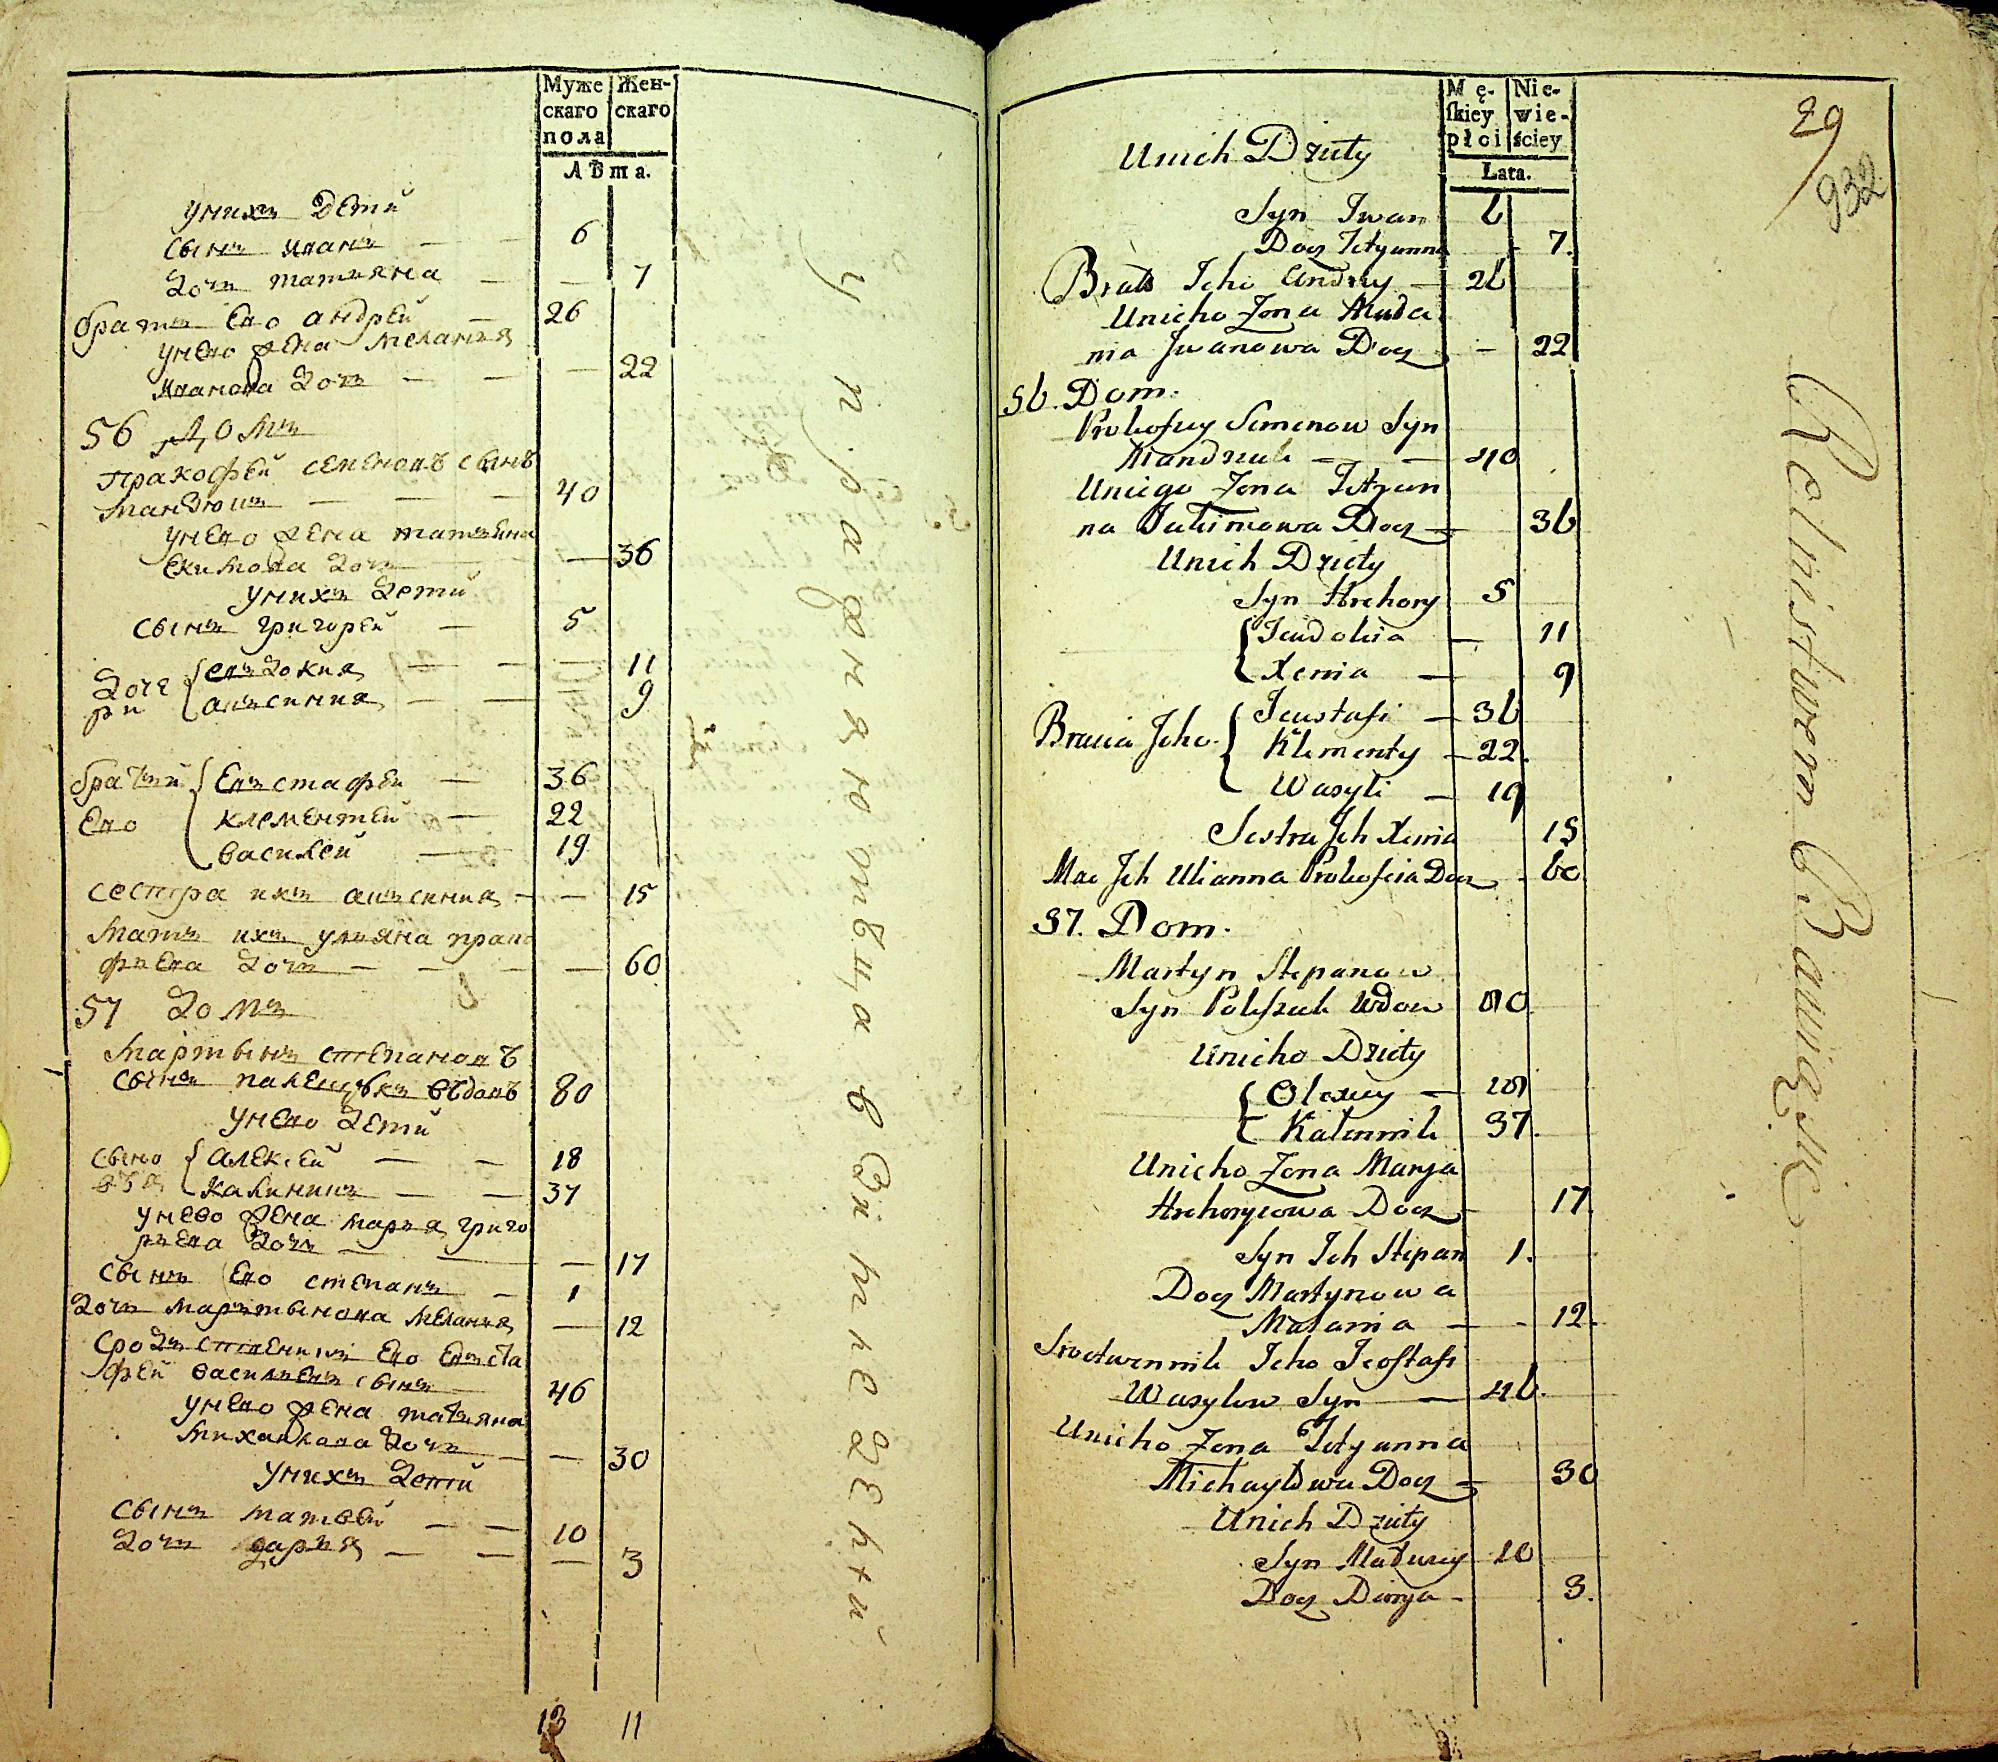 Муже
скаго
пола
Жен-
скаго
Лѣта.
унихъ дети
сынъ иванъ — — 6
дочь татьяна — — 7
братъ его андрей — 26
унего жена мелания
иванова дочь — — — 22
56 домъ
пракофей семеновъ сынъ
мандзюкъ — — — 40
унего жена татьяна
екимова дочь — — 36
унихъ дети
сынъ григорей — 5
доче
ри
евдокия — — — 11
аксиния — — — 9
братьи
его
евстафей — 36
клементей — 22
василей — 19
сестра ихъ аксиния — — 15
мать ихъ ульяна прако
фьева дочь — — — — 60
57 домъ
мартынъ степановъ
сынъ палещукъ вдовъ 80
унего дети
сыно
вья
алексей — — 18
калиникъ — — 37
унево жена марья григо
рьева дочь — — — 17
сынъ его степанъ — 1
дочь мартынова мелания — 12
сродственникъ его евста
фей васильевъ сынъ — 46
унего жена татьяна
михайлова дочь — — 30
унихъ дети
сынъ матвей — — 10
дочь дарья — — — 3
13 11
Mę-
skiey
płci
Nie-
wie-
ściey
Lata.
29
932
Unich Dziety
Syn Iwan 6
Docz Tetyanna - 7.
Brat Jeho Andrey — 26
Unieho Zona Mała
nia Iwanowa Docz - 22
56. Dom.
Prokofiey Semenow Syn
Mandziuk — — 40
Uniego Zona Tetyan
na Jakimowa Docz — 36
Unich Dziety
Syn Hrehory 5
Jeudokia — 11
Xenia — 9
Bracia Jeho
Jeustafi — 36
Klementy — 22.
Wasyli — 19
Sestra Jch Xenia 15
Mac Jch Ulianna Prokofeia Docz - 60
57. Dom.
Martyn Stepanow
Syn Poleszuk Wdow 80
Unieho Dziety
Olexiey — 18
Kalennik 37.
Unieho Zona Marya
Hrehoryiowa Docz - 17
Syn Jch Stepan 1.
Docz Martynowa
Małania — - 12.
Srodwennik Jeho Jeostafi
Wasylow Syn — 46.
Unieho Zona Tetyanna
Michayłowa Docz — 30
Unich Dziety
Syn Matwiey 10
Docz Darya - 3.